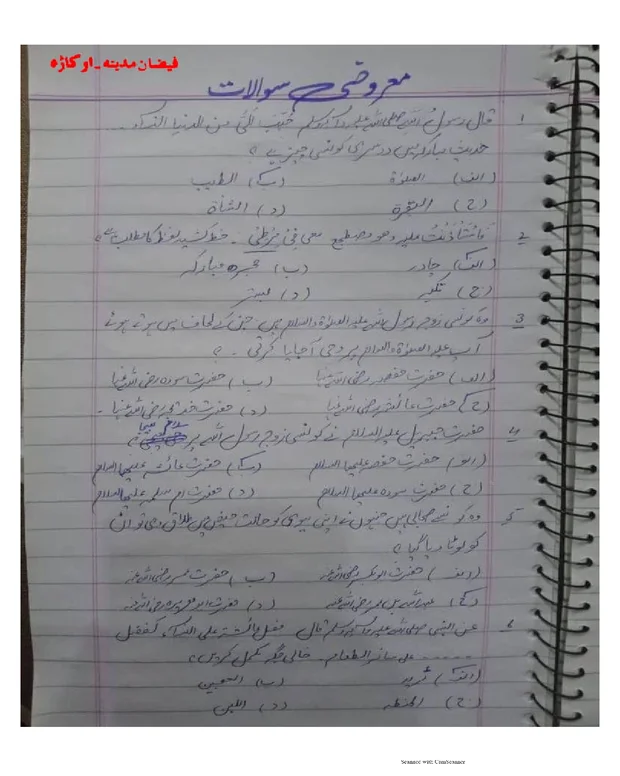 فیضان مدینہ ۔ اوکاڑہ
معروضی سوالات
1 قال رسول اللہ صلی اللہ علیہ وآلہ وسلم حُبِّبَ اِلَیَّ من الدنیا النساء ۔۔۔۔
حدیث مبارکہ میں دوسری کونسی چیز ہے ؟
(الف) الصلوٰۃ (ب) الطیب
(ج) البقرۃ (د) الشاۃ
2 معی فی مِرْطِی ۔ خط کشیدہ لفظ کا مطلب ہے ؟
(الف) چادر (ب) حجرہ مبارکہ
(ج) تکیہ (د) بستر
3 وہ کونسی زوجہ رسول اللہ علیہ الصلوٰۃ والسلام ہیں جن کے لحاف میں ہوتے ہوئے
آپ علیہ الصلوٰۃ والسلام پر وحی آجایا کرتی ۔ ؟
(الف) حضرت حفصہ رضی اللہ عنہا (ب) حضرت سودہ رضی اللہ عنہا
(ج) حضرت عائشہ رضی اللہ عنہا (د) حضرت خدیجہ رضی اللہ عنہا ۔
4 حضرت جبریل علیہ السلام نے کونسی زوجہ رسول اللہ پر سلام بھیجا ؟
(الف) حضرت حفصہ علیہا السلام (ب) حضرت عائشہ علیہا السلام
(ج) حضرت سودہ علیہا السلام (د) حضرت ام سلمہ علیہا السلام
5 وہ کونسے صحابی ہیں جنہوں نے اپنی بیوی کو حالت حیض میں طلاق دی تو ان
کو لوٹا دیا گیا ؟
(الف) حضرت ابوبکر رضی اللہ عنہ (ب) حضرت عمر رضی اللہ عنہ
(ج) عبداللہ بن عمر رضی اللہ عنہ (د) حضرت ابو ہریرہ رضی اللہ عنہ
6 عن النبی صلی اللہ علیہ وآلہ وسلم قال فضل عائشۃ علی النساء کفضل
۔۔۔۔۔۔ علی سائر الطعام ۔ خالی جگہ مکمل کریں ؟
(الف) ثرید (ب)
(ج) الحنطہ (د) اللبن
Scanned with CamScanner